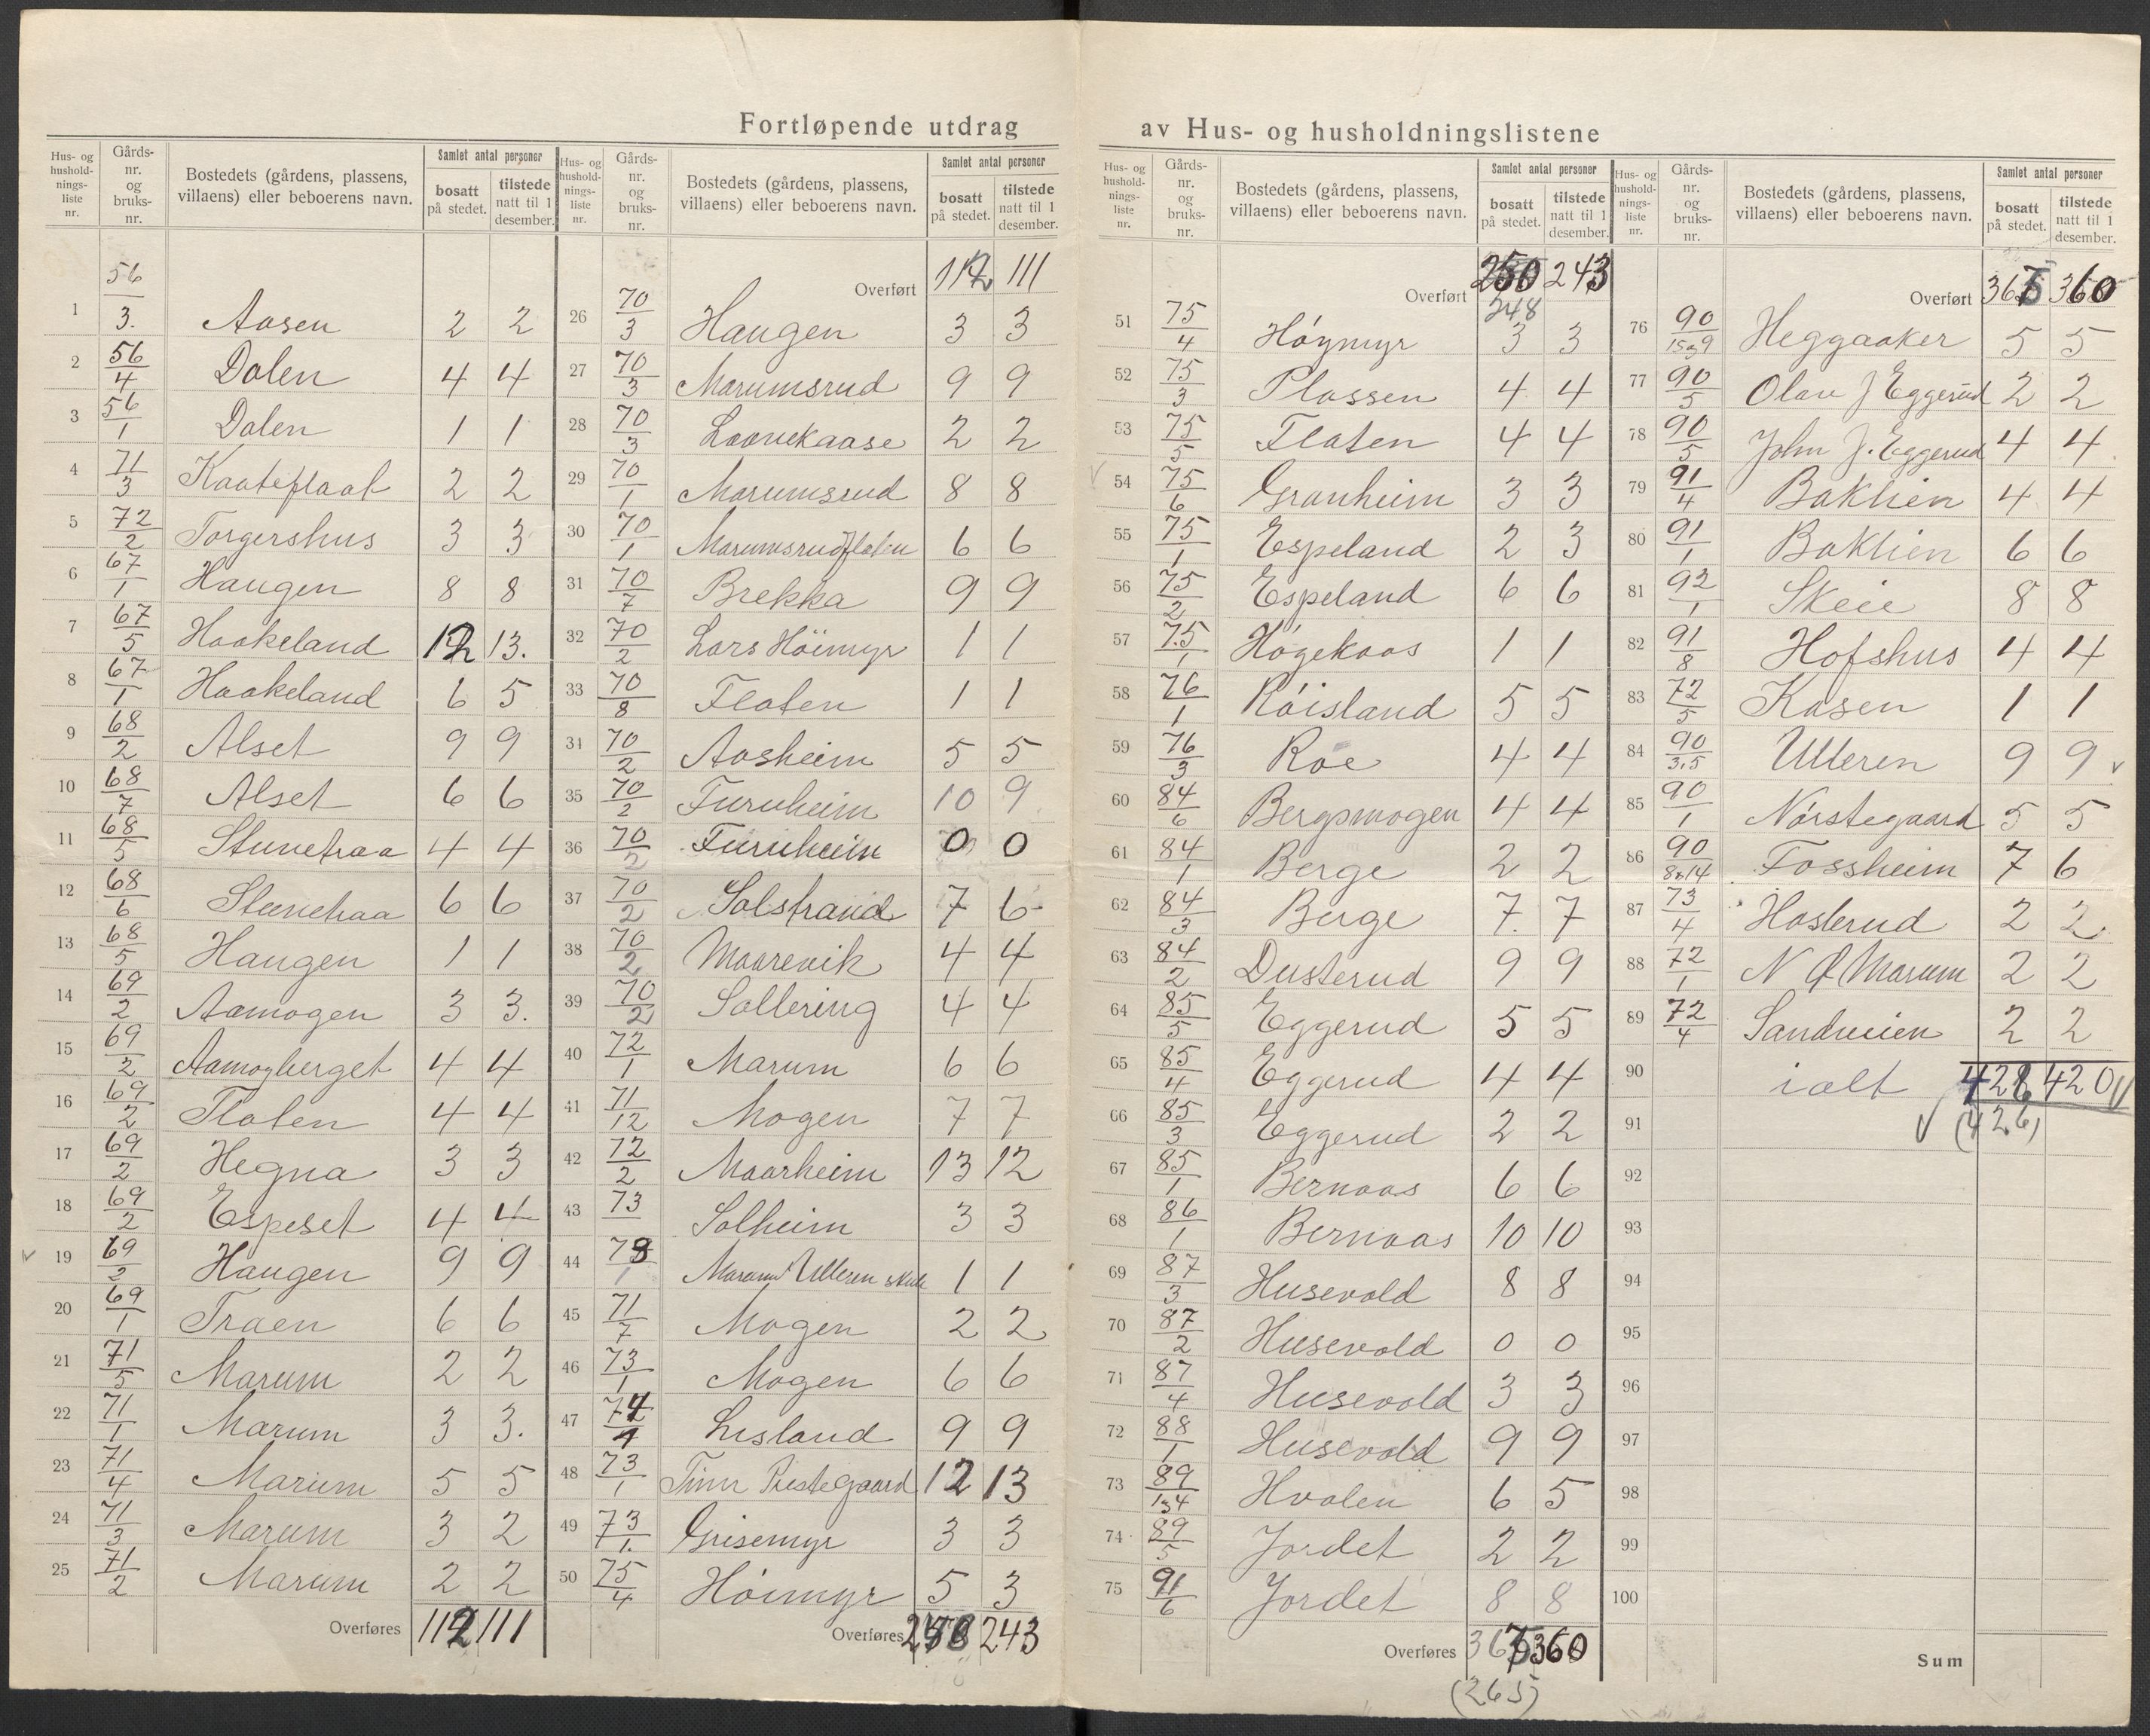 Fortløpende utdrag av Hus- og husholdningslistene
Hus- og husholdnings-liste nr. | Gårds-nr. og bruks-nr. | Bostedets (gårdens, plassens, villaens) eller beboerens navn. | Samlet antal personer bosatt på stedet. | tilstede natt til 1 desember.
1 56/3. Aasen 2 2
2 56/4 Dalen 4 4
3 56/1 Dalen 1 1
4 71/3 Kaateplaat 2 2
5 72/2 Torgershus 3 3
6 67/1 Haugen 8 8
7 67/5 Haakeland 12 13.
8 67/1 Haakeland 6 5
9 68/2 Alset 9 9
10 68/7 Alset 6 6
11 68/5 Stunetraa 4 4
12 68/6 Stunetraa 6 6
13 68/5 Haugen 1 1
14 69/2 Aamogen 3 3.
15 69/2 Aamogberget 4 4
16 69/2 Flaten 4 4
17 69/2 Hegna 3 3
18 69/2 Espeset 4 4
19 69/2 Haugen 9 9
20 69/1 Traen 6 6
21 71/5 Marum 2 2
22 71/1 Marum 3 3.
23 71/4 Marum 5 5
24 71/3 Marum 3 2
25 71/2 Marum 2 2
Overføres 112 111
Hus- og husholdnings-liste nr. | Gårds-nr. og bruks-nr. | Bostedets (gårdens, plassens, villaens) eller beboerens navn. | Samlet antal personer bosatt på stedet. | tilstede natt til 1 desember.
Overført 112 111
26 70/3 Haugen 3 3
27 70/3 Marumsrud 9 9
28 70/3 Laavekaase 2 2
29 70/1 Marumsrud 8 8
30 70/1 Marumsrudflaten 6 6
31 70/7 Brekka 9 9
32 70/2 Lars Höimyr 1 1
33 70/8 Flaten 1 1
34 70/2 Aasheim 5 5
35 70/2 Furuheim 10 9
36 70/2 Furuheim 0 0
37 70/2 Solstrand 7 6
38 70/2 Maarevik 4 4
39 70/2 Sollering 4 4
40 72/1 Marum 6 6
41 71/12 Mogen 7 7
42 72/2 Maarheim 13 12
43 73 Solheim 3 3
44 73/1 Marum Ulleren skule 1 1
45 71/7 Mogen 2 2
46 73/1 Mogen 6 6
47 74/1 Lisland 9 9
48 73/1 Tinn Prestegaard 12 13
49 73/1. Grisemyr 3 3
50 75/4 Höimyr 5 3
Overføres 250 243
Hus- og husholdnings-liste nr. | Gårds-nr. og bruks-nr. | Bostedets (gårdens, plassens, villaens) eller beboerens navn. | Samlet antal personer bosatt på stedet. | tilstede natt til 1 desember.
Overført 250 243
248
51 75/4 Höymyr 3 3
52 75/3 Plassen 4 4
53 75/5 Flaten 4 4
54 75/6 Granheim 3 3
55 75/1 Espeland 2 3
56 75/2 Espeland 6 6
57 75/1 Høgekaas 1 1
58 76/1 Röisland 5 5
59 76/3 Roe 4 4
60 84/6 Bergsmogen 4 4
61 84/1 Berge 2 2
62 84/3 Berge 7. 7
63 84/2 Dusterud 9 9
64 85/5 Eggerud 5 5
65 85/4 Eggerud 4 4
66 85/3 Eggerud 2 2
67 85/1 Bernaas 6 6
68 86/1 Bernaas 10 10
69 87/3 Husevold 8 8
70 87/2 Husevold 0 0
71 87/4 Husevold 3 3
72 88/1 Husevold 9 9
73 89/1 og 4 Hvalen 6 5
74 89/5 Jordet 2 2
75 91/6 Jordet 8 8
Overføres 367 360
(265)
Hus- og husholdnings-liste nr. | Gårds-nr. og bruks-nr. | Bostedets (gårdens, plassens, villaens) eller beboerens navn. | Samlet antal personer bosatt på stedet. | tilstede natt til 1 desember.
Overført 367 360
76 90/15 og 9 Heggaaker 5 5
77 90/5 Olav J Eggerud 2 2
78 90/5 John J. Eggerud 4 4
79 91/4 Baklien 4 4
80 91/1 Baklien 6 6
81 92/1 Skeie 8 8
82 91/8 Hofshus 4 4
83 72/5 Kasen 1 1
84 90/3,5 Ulleren 9 9
85 90/1 Nørstegaard 5 5
86 90/8 14 Fossheim 7 6
87 73/4 Haslerud 2 2
88 72/1 N O Marum 2 2
89 72/4 Sandveien 2 2
90 ialt 428 420
91 (426)
92
93
94
95
96
97
98
99
100
Sum